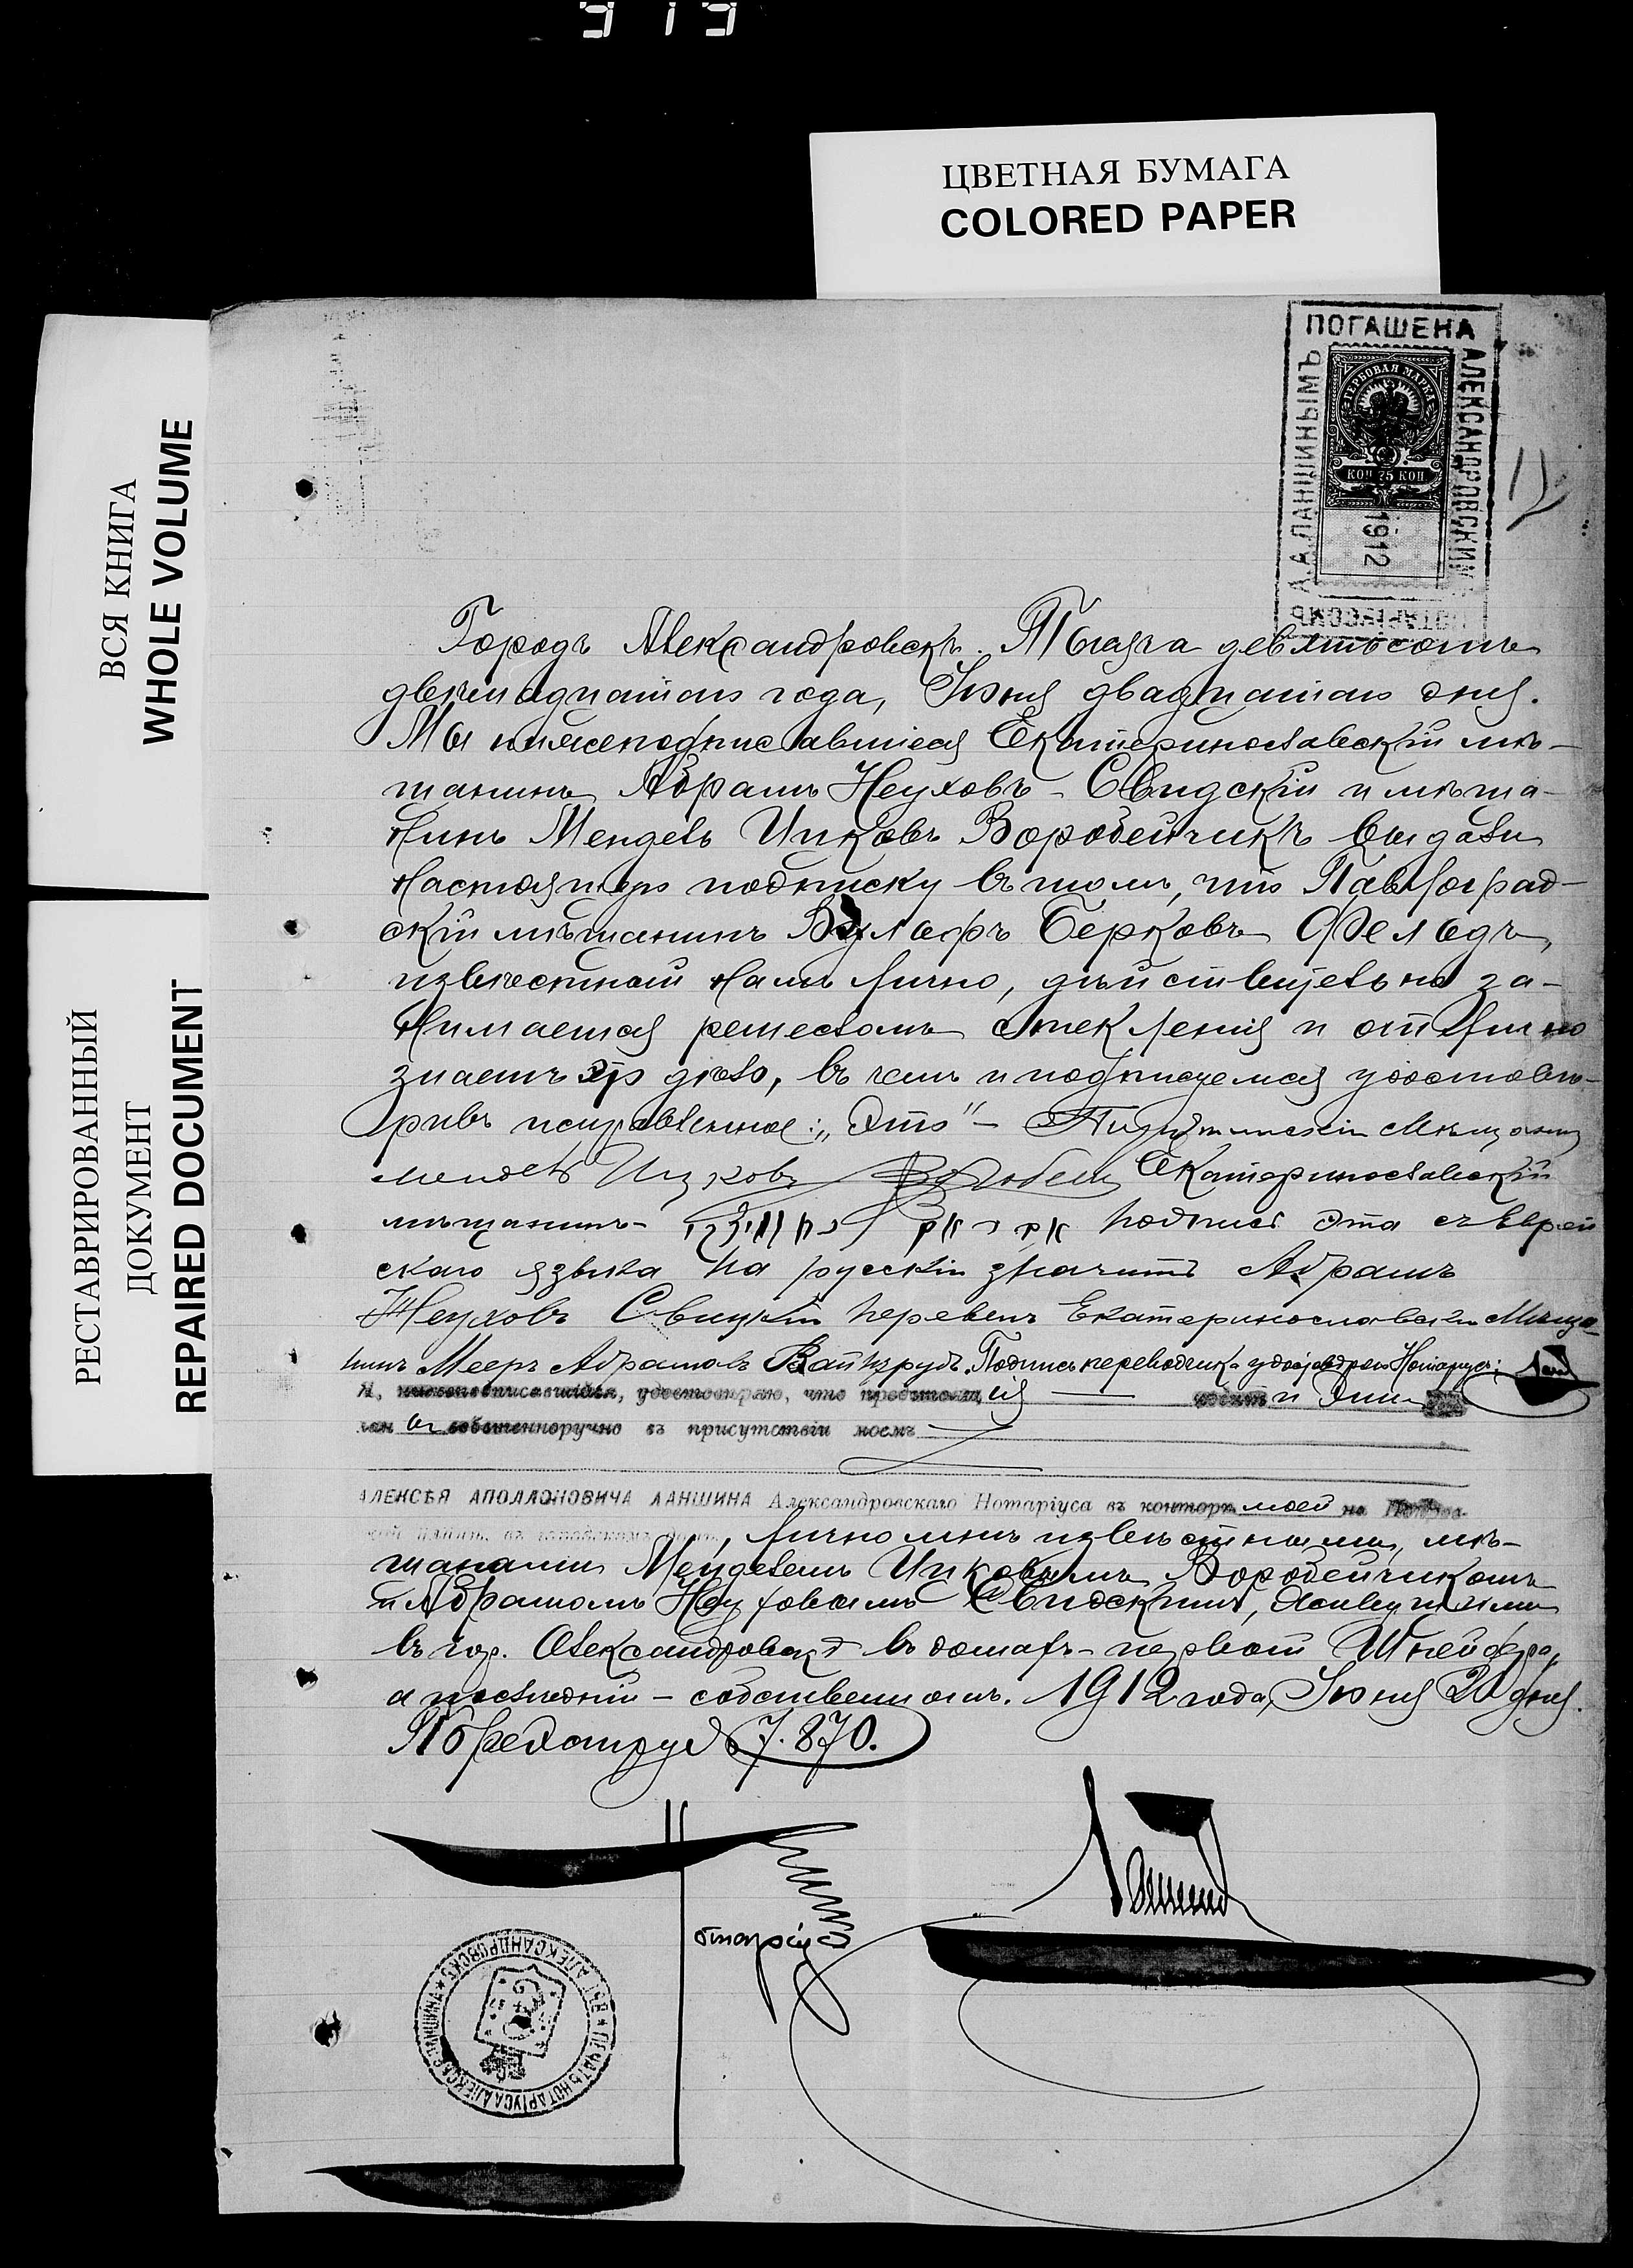 919
ЦВЕТНАЯ БУМАГА
COLORED PAPER
ВСЯ КНИГА
WHOLE VOLUME
РЕСТАВРИРОВАННЫЙ
ДОКУМЕНТ
REPAIRED DOCUMENT
ПОГАШЕНА
АЛЕКСАНДРОВСКИМ
НОТАРІУСОМЪ
А.А.ЛАНШИНЫМЪ
ГЕРБОВАЯ МАРКА
КОП 75 КОП
1912
12
Городъ Александровскъ. Тысяча девятьсотъ
двѣнадцатаго года, Іюня двадцатаго дня.
Мы нижеподписавшіеся Екатеринославскій мѣ-
щанинъ Абрамъ Неуховъ-Свидскій и мѣща-
нинъ Мендель Ицковъ Воробейчикъ выдали
настоящую подписку въ томъ, что Павлоград-
скій мѣщанинъ Вульфъ Берковъ
извѣстный намъ лично, дѣйствительно за-
нимается ремесломъ стекленія и отлично
знаетъ это дѣло, въ чемъ и подписуемся удостовѣ-
ривъ исправленное: „Это" - Мѣщанинъ
мендель Ицковъ Екатеринославскій
мѣщанинъ- Подпись эта съ еврей
скаго языка на русскій значитъ Абрамъ
Неуховъ Свицкій перевелъ Екатеринославскій Мѣща-
нинъ Мееръ Абрамовъ Подпись переводчика удостовѣряю Нотаріусъ:
Я, нижеподписавшійся, удостовѣряю, что предстоящ ія
собственноручно въ присутствіи моемъ
АЛЕКСѢЯ АПОЛЛОНОВИЧА ЛАНШИНА Александровскаго Нотаріуса въ конторѣ моей на
лично мнѣ извѣстными, мѣ-
щанами Менделемъ Ицковымъ Воробейчикомъ
и Абрамомъ Неуховымъ Свидскимъ, живущими
въ гор. Александровскѣ въ домахъ-первый Шнейдера,
а послѣдній - собственномъ. 1912 года, Іюня 20 дня.
По реестру № 7.870.
Нотаріусъ
Ланшинъ
ПЕЧАТЬ НОТАРІУСА АЛЕКСѢЯ ЛАНШИНА